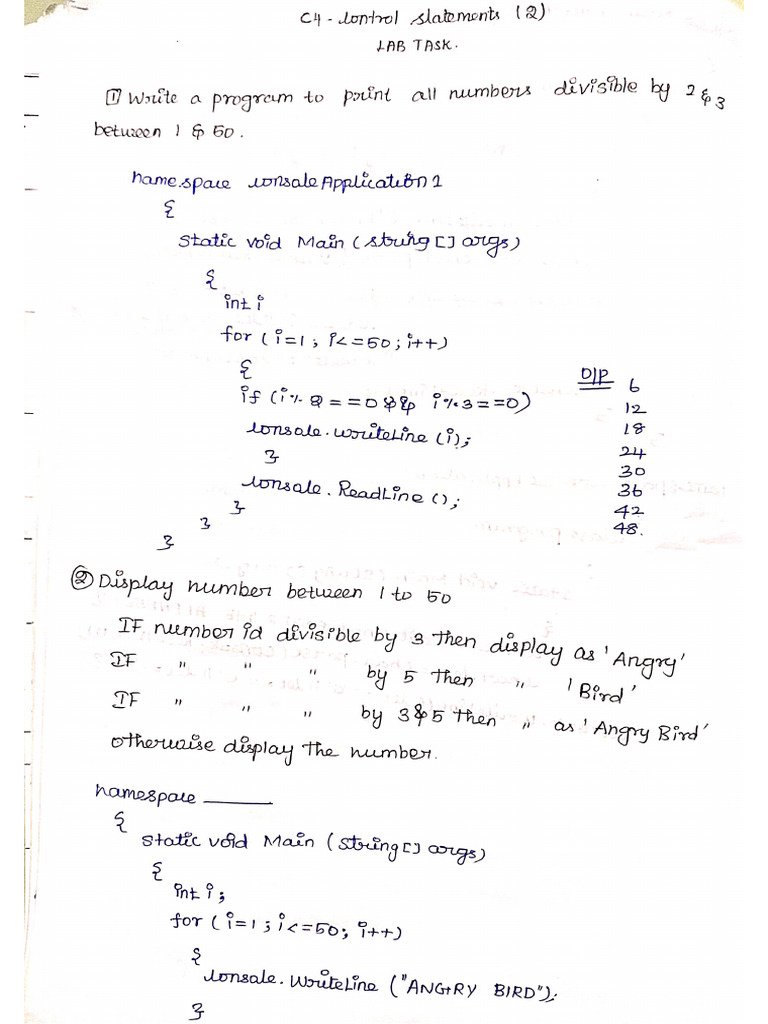 C4 - Control Statements (2)
LAB TASK.
1 Write a program to print all numbers divisible by 2 & 3
between 1 & 50.
namespace ConsoleApplication1
{
static void Main (string [] args)
{
int i
for (i=1 ; i<=50 ; i++)
{
if (i % 2 == 0 && i % 3 == 0)
Console.WriteLine (i);
}
Console.ReadLine ();
}
}
}
O/P
6
12
18
24
30
36
42
48.
② Display number between 1 to 50
IF number id divisible by 3 then display as 'Angry'
IF " " " by 5 then " 'Bird'
IF " " " by 3 & 5 then " as 'Angry Bird'
otherwise display the number.
namespace ______
{
static void Main (string [] args)
{
int i ;
for (i=1 ; i<=50; i++)
{
Console.WriteLine ("ANGRY BIRD");
}